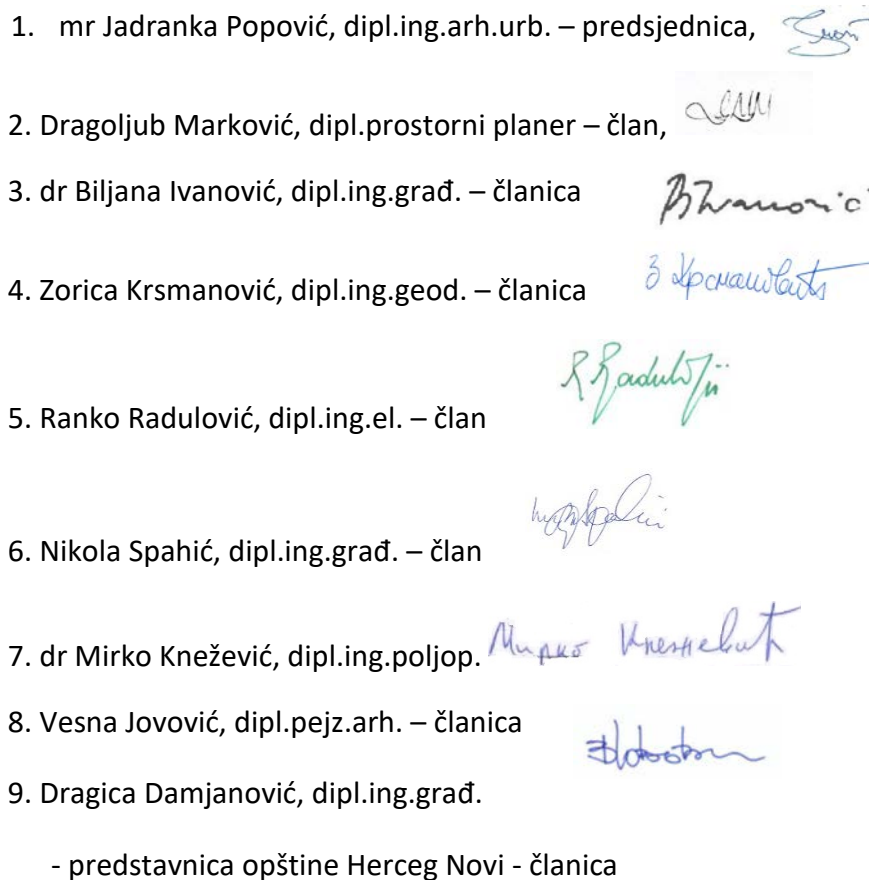 1. mr Jadranka Popović, dipl.ing.arh.urb. – predsjednica,
2. Dragoljub Marković, dipl.prostorni planer – član,
3. dr Biljana Ivanović, dipl.ing.građ. – članica BIvanović
4. Zorica Krsmanović, dipl.ing.geod. – članica З Крсмановић
5. Ranko Radulović, dipl.ing.el. – član
6. Nikola Spahić, dipl.ing.građ. – član
7. dr Mirko Knežević, dipl.ing.poljop. Мирко Кнежевић
8. Vesna Jovović, dipl.pejz.arh. – članica
9. Dragica Damjanović, dipl.ing.građ.
- predstavnica opštine Herceg Novi - članica